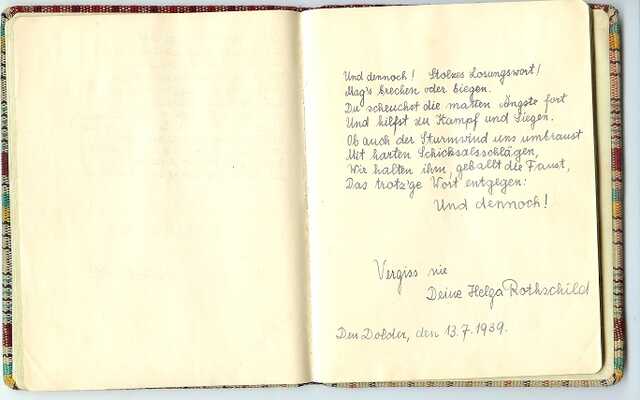 Und dennoch! Stolzes Losungswort!
Mag's brechen oder biegen.
Du scheuchst die matten Ängste fort
Und hilfst zu Kampf und Siegen.
Ob auch der Sturmwind uns umbraust
Mit harten Schicksalsschlägen,
Wir halten ihm, geballt die Faust,
Das trotz'ge Wort entgegen:
Und dennoch!
Vergiss nie
Deine Helga Rothschild
Den Dolder, den 13.7.1939.